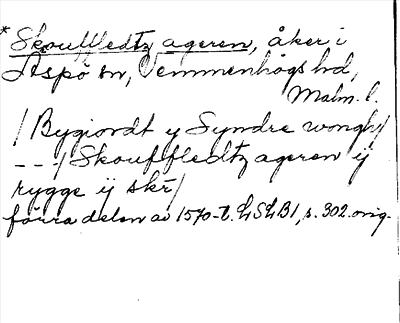 * Skouffledtz ageren, åker i
Äspö sn, Vemmenhögs hd,
Malm. l.
/ Bygiordt y Syndre wongh /
-- / Skouffledtz ageren ij
rygge ij skr /
förra delen av 1570-t. LSLB1, s. 302. orig.